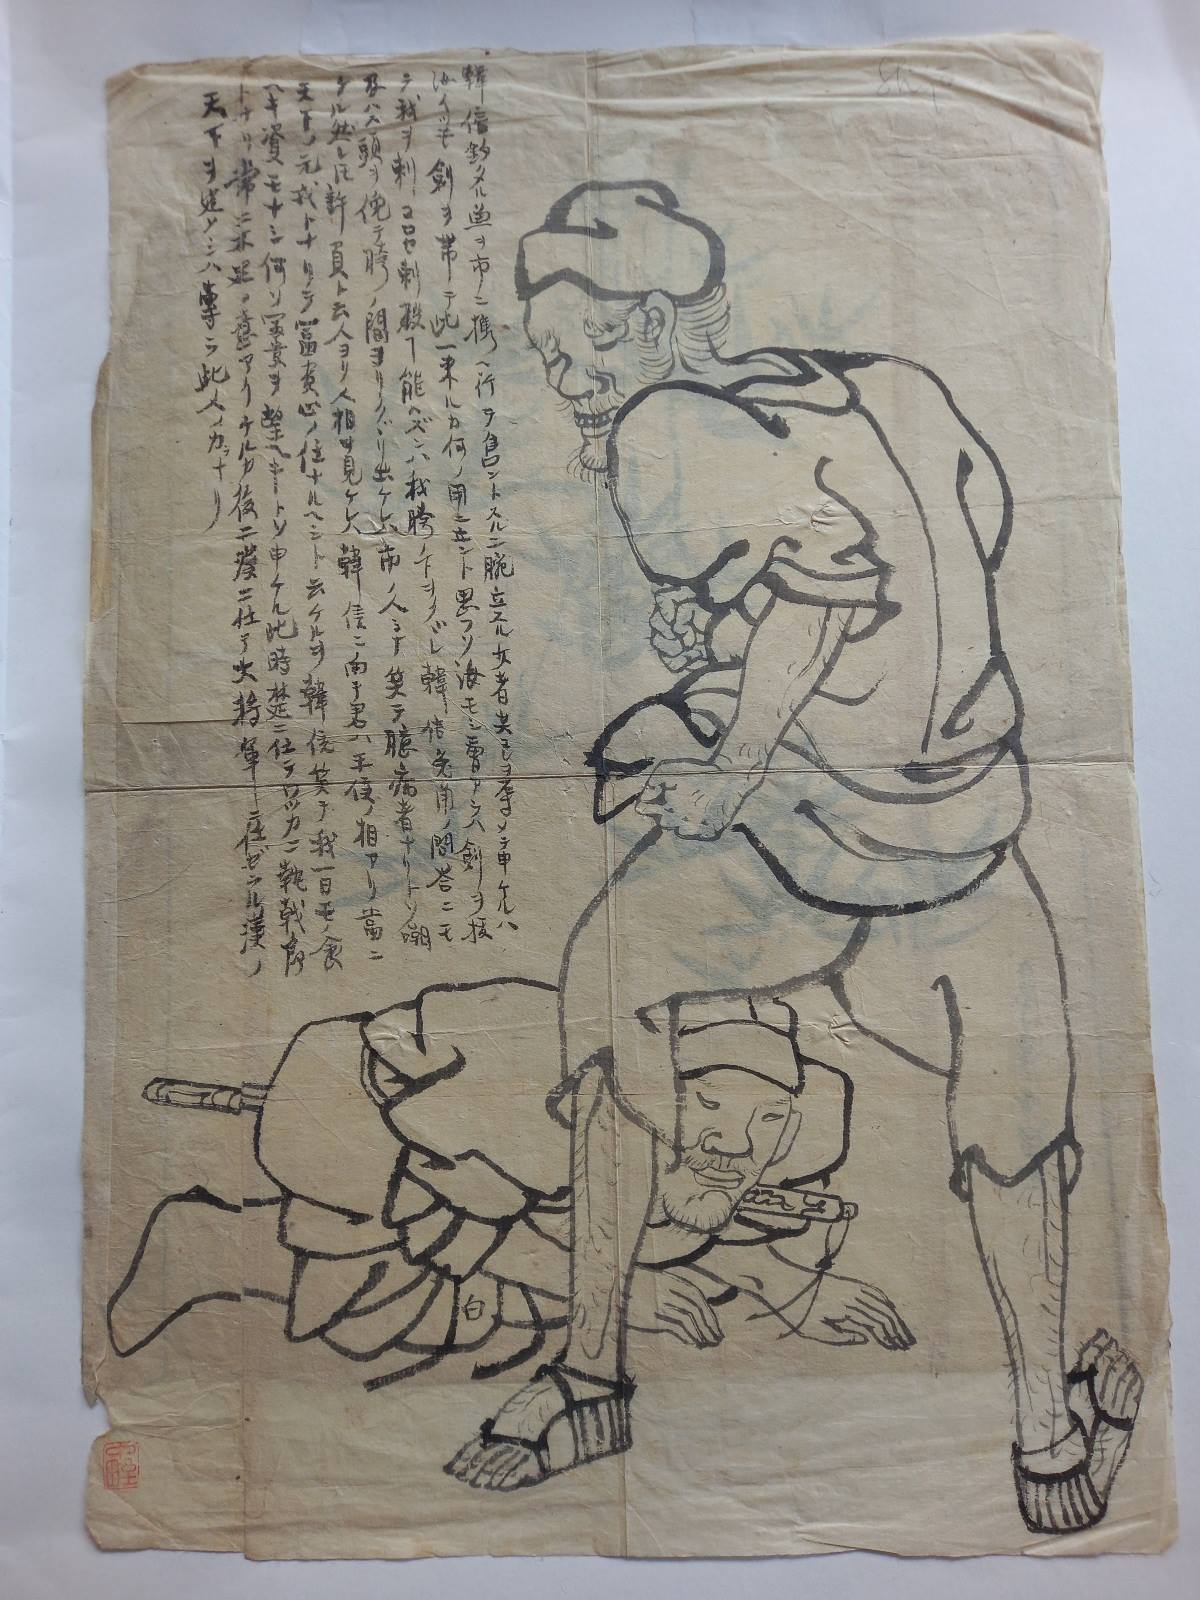 韓信釣タル魚ヲ市ニ携ヘ行テ色ントスルニ腕立スル女者共是ヲ辱メテ申ケルハ
汝イツモ劍ヲ帯テ此ニ来ルカ何ノ用ニ立ント思フソ汝モシ勇アラハ劍ヲ抜
テ我ヲ刺コロセ刺殺コ能ハズンハ我胯ノ下ヲクグレ韓信兎角ノ問答ニモ
及ハス頭ヲ俛テ胯ノ間ヨリクグリ出ケレハ市ノ人ミナ笑テ臆病者ナリトソ嘲
ケル然レ𪜈許負ト云人ヨリ人相ヲ見ケレハ韓信ニ向テ君ハ王侯ノ相アリ當ニ
天下ノ元戎トナリテ冨貴心ノ侭ナルヘシト云ケルヲ韓信笑テ我一日モノ食
ヘキ資モナシ何ソ冨貴ヲ望ヘキトソ申ケル此時楚ニ仕テワツカニ執戟郎
トナリ常ニ不足ノ意アリケルカ後ニ漢ニ仕テ大将軍ニ任ゼラル漢ノ
天下ヲ定メシハ専ラ此人ノカナリ
白